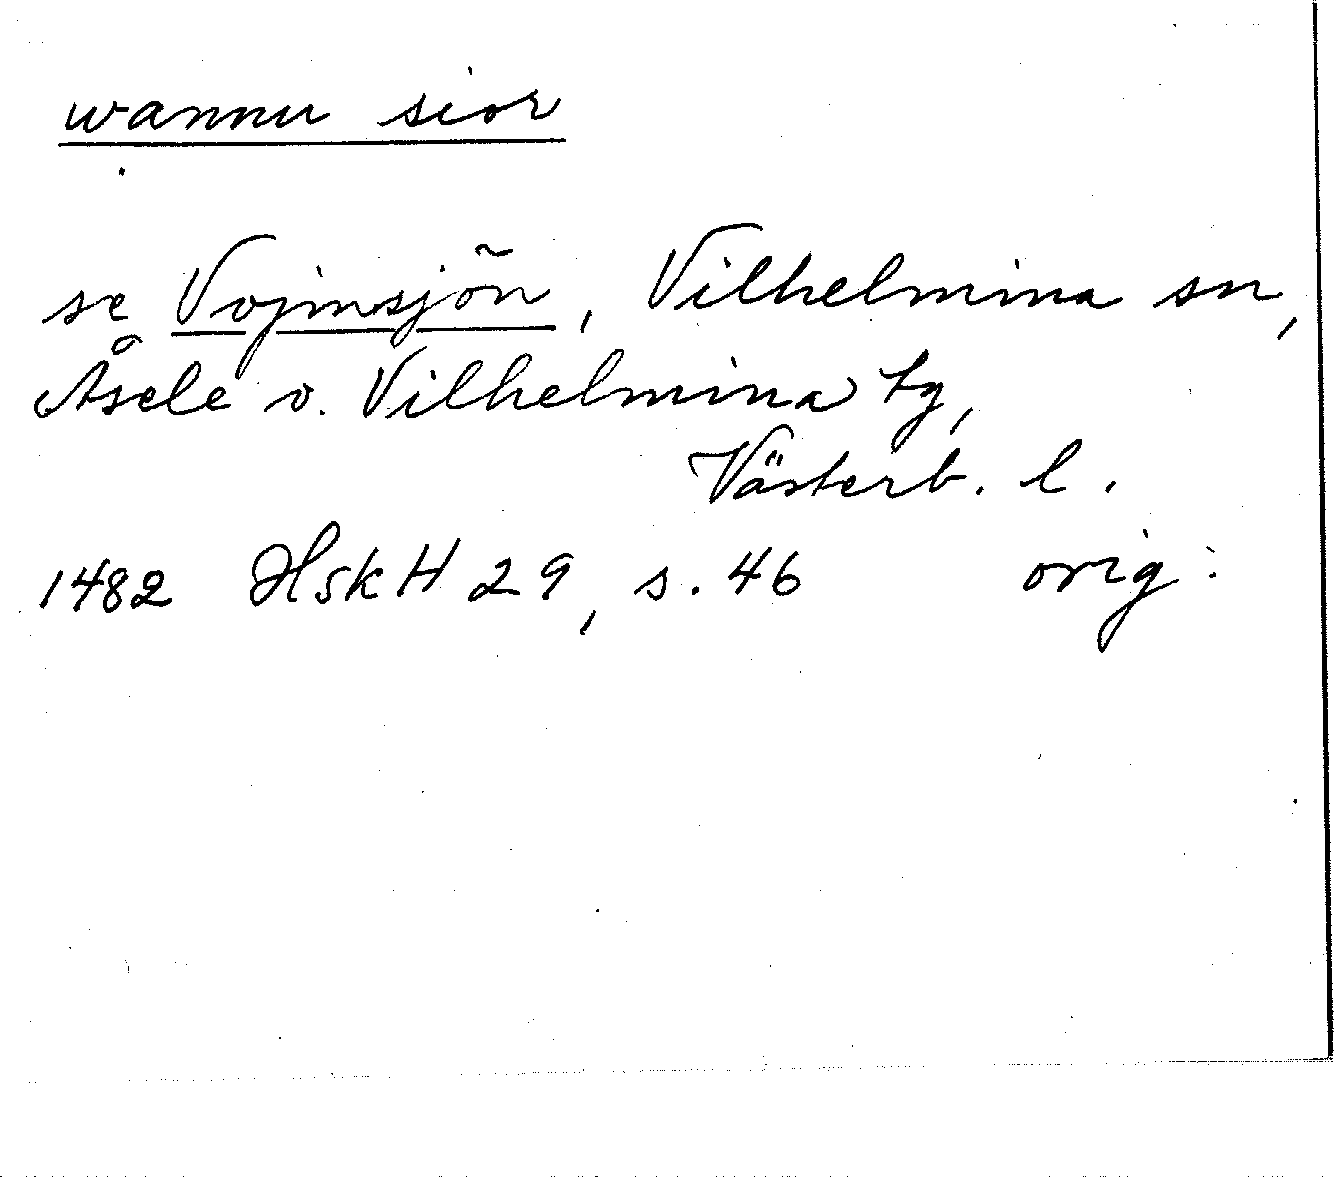 wannu sior
se Vojmsjön, Vilhelmina sn,
Åsele o. Vilhelmina tg,
Västerb. l.
1482 HskH 29, s. 46 orig.